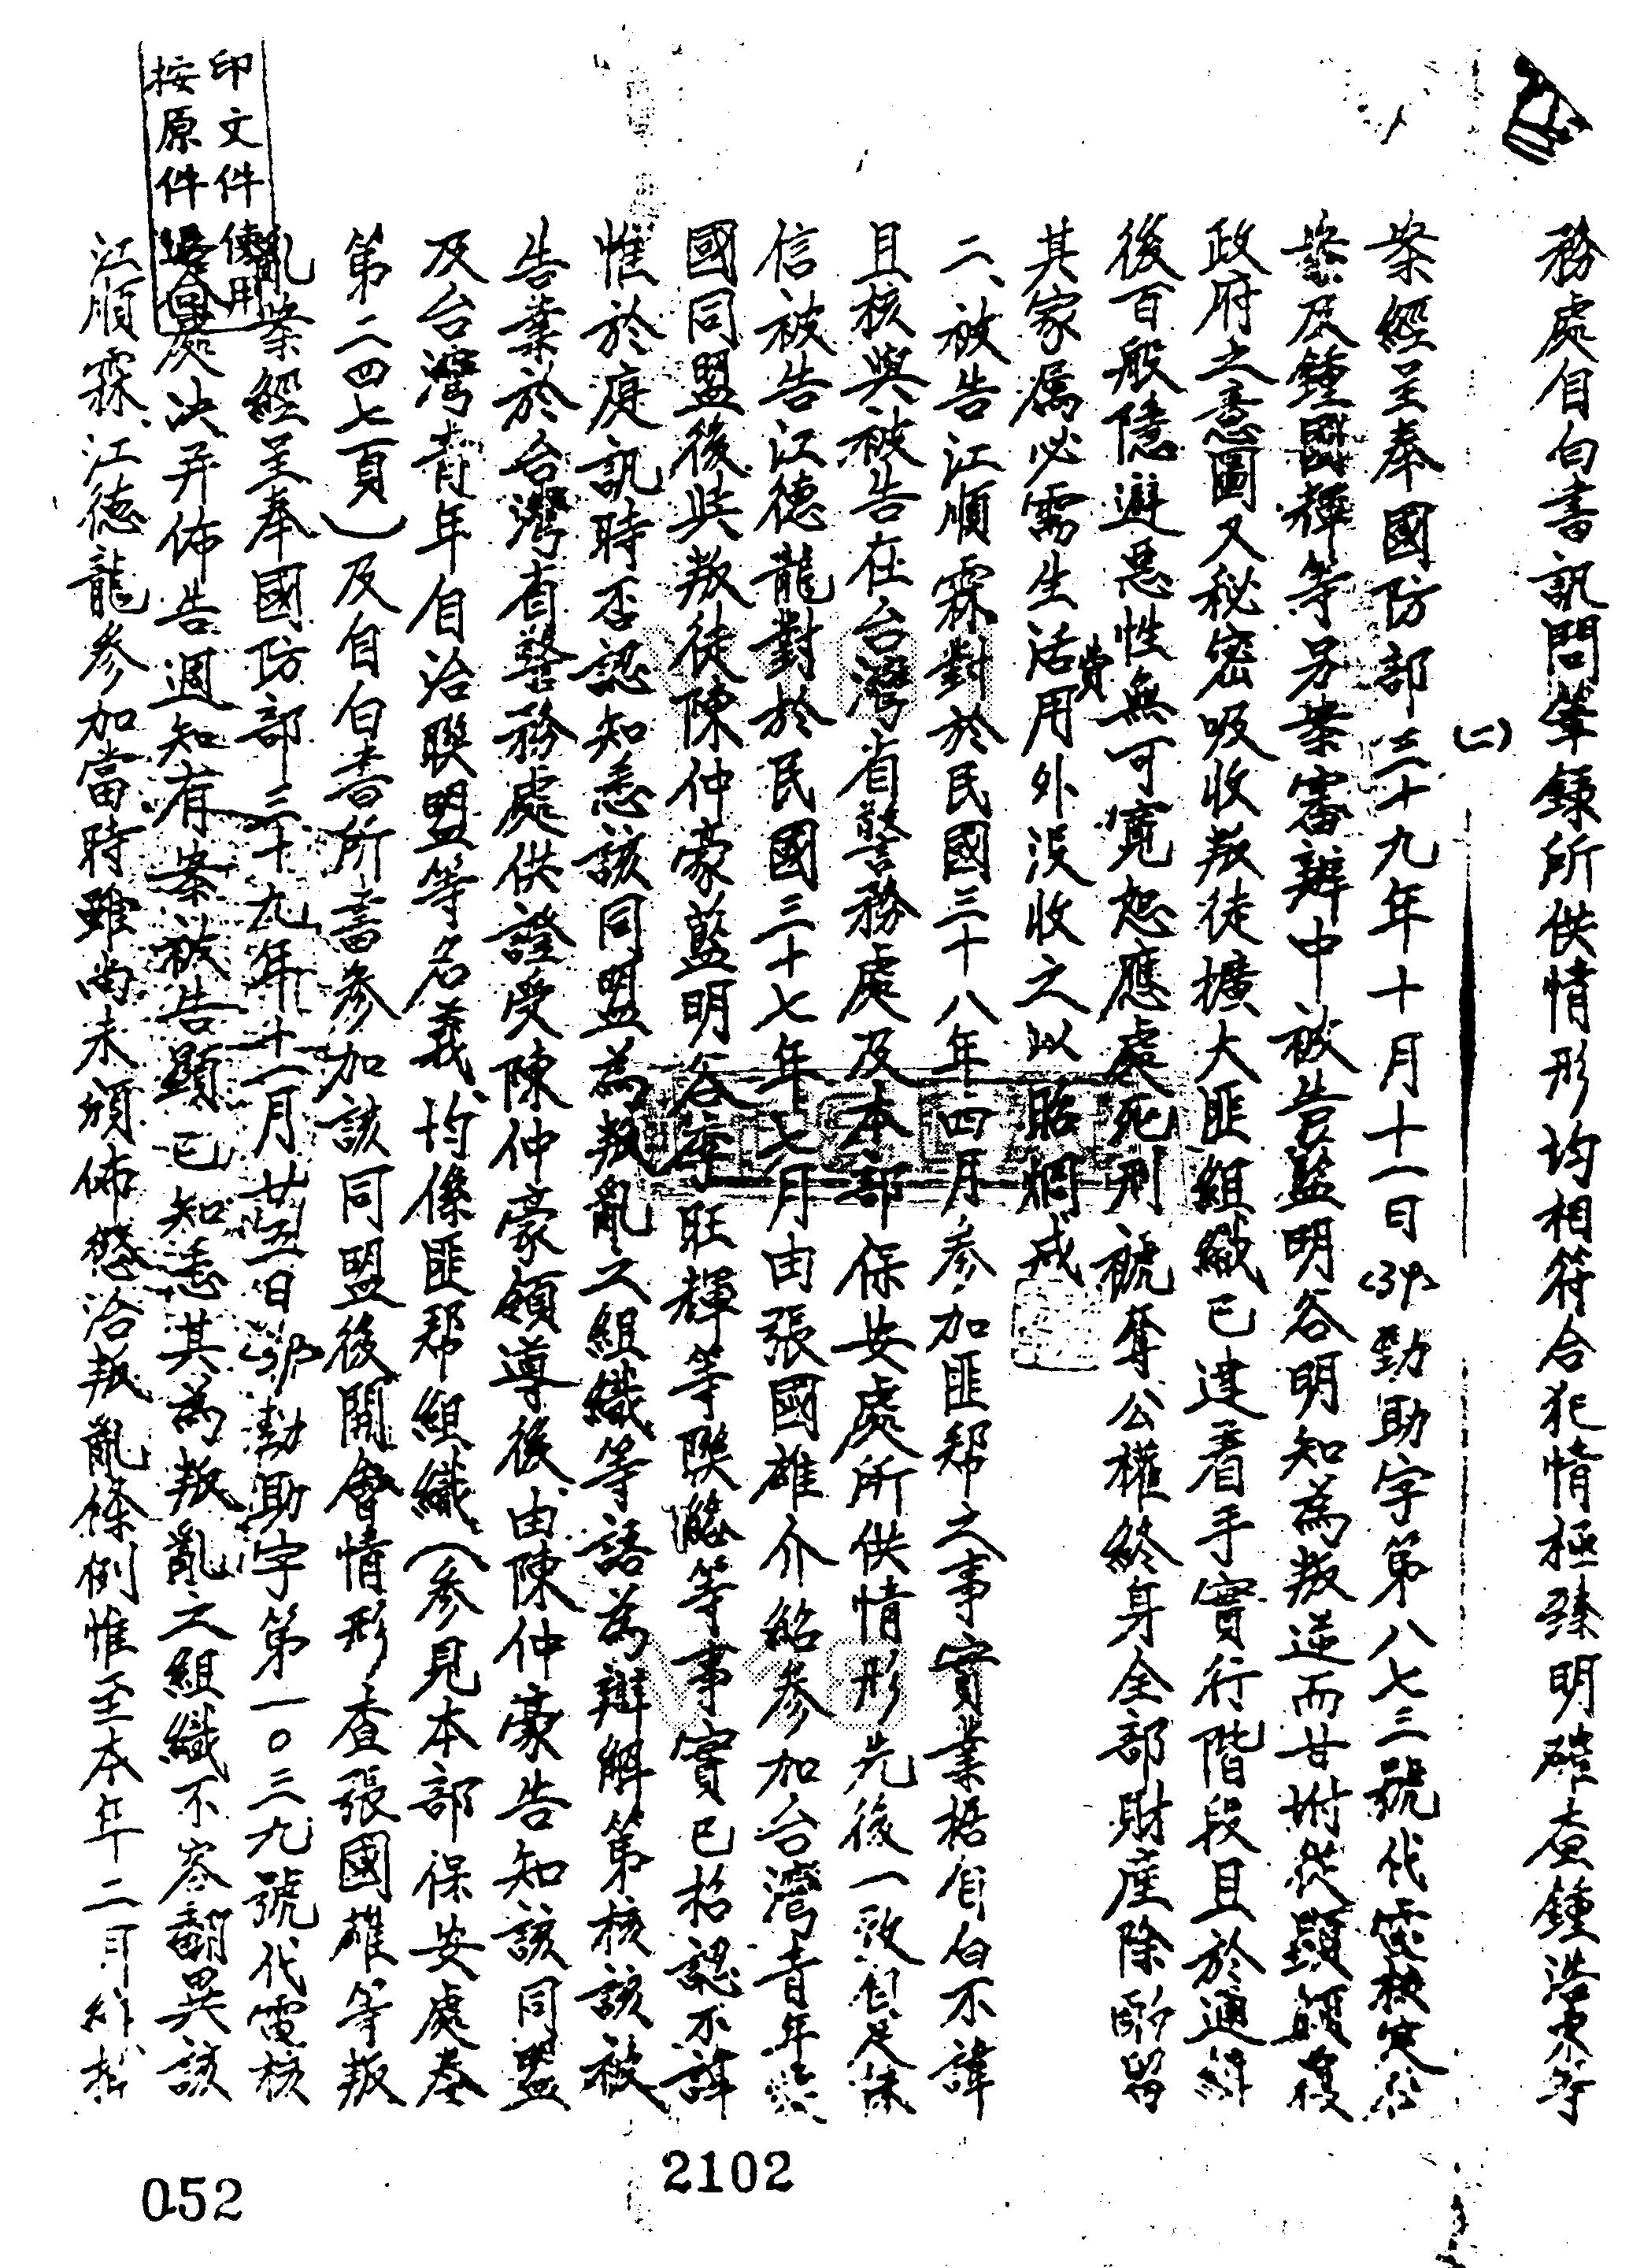 務處自白書訊問筆錄所供情形均相符合犯情極臻明確查鍾浩東等
(二)
案經呈奉國防部三十九年十月十一日(39)勁助字第八七三號代電核定公
案及鍾國輝等另案審辦中被告藍明谷明知為叛逆而甘附從顯
政府之意圖又秘密吸收叛徒擴大匪組織已達着手實行階段且於通緝
後百般隱避惡性無可寬恕應處死刑褫奪公權終身全部財産除酌留
其家屬必需生活費用外沒收之以昭炯戒
二、被告江順霖對於民國三十八年四月參加匪帮之事實業據自白不諱
且核與被告在台灣省警務處及本部保安處所供情形先後一致自足採
信被告江德龍對於民國三十七年七月由張國雄介紹參加台灣青年
國同盟後與叛徒陳仲豪藍明谷李旺輝等聯絡等事實已招認不諱
惟於庭訊時否認知悉該同盟為叛亂之組織等語為辯解第核該被
告業於台灣省警務處供證受陳仲豪領導後、由陳仲豪告知該同盟
及台灣青年自治聯盟等名義、均係匪帮組織（參見本部保安處卷
第二四七頁）及自白書所書參加該同盟後開會情形查張國雄等叛
亂案經呈奉國防部三十九年十一月廿五日(39)勁助字第一〇三九號代電核
處決并佈告週知有案被告顯已知悉其為叛亂之組織不容翻異該
江順霖、江德龍參加當時雖尚未頒佈懲治叛亂條例惟至本年二月
印文件使用
按原件退回
2102
052